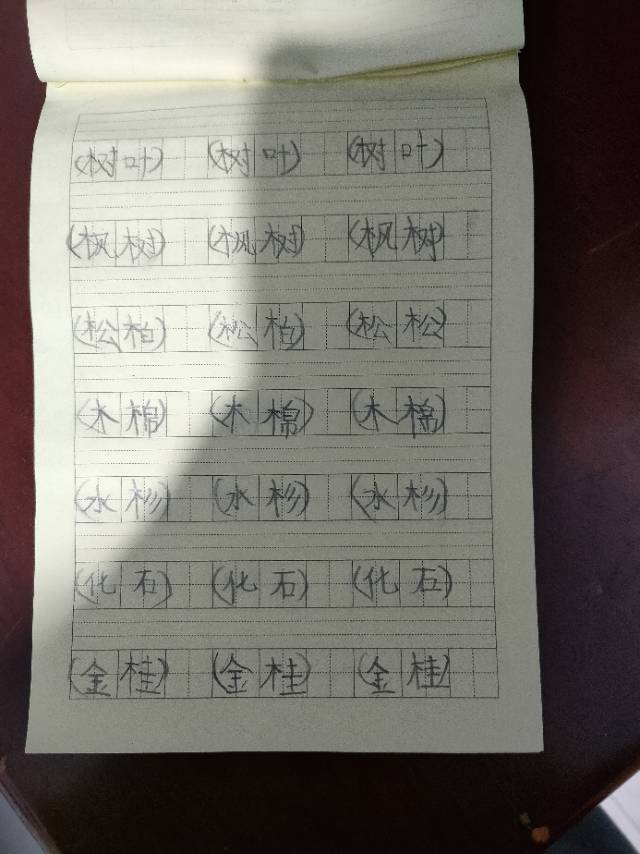 (树叶) (树叶) (树叶)
(枫树) (枫树) (枫树)
(松柏) (松柏) (松松)
(木棉) (木棉) (木棉)
(水杉) (水杉) (水杉)
(化石) (化石) (化石)
(金桂) (金桂) (金桂)